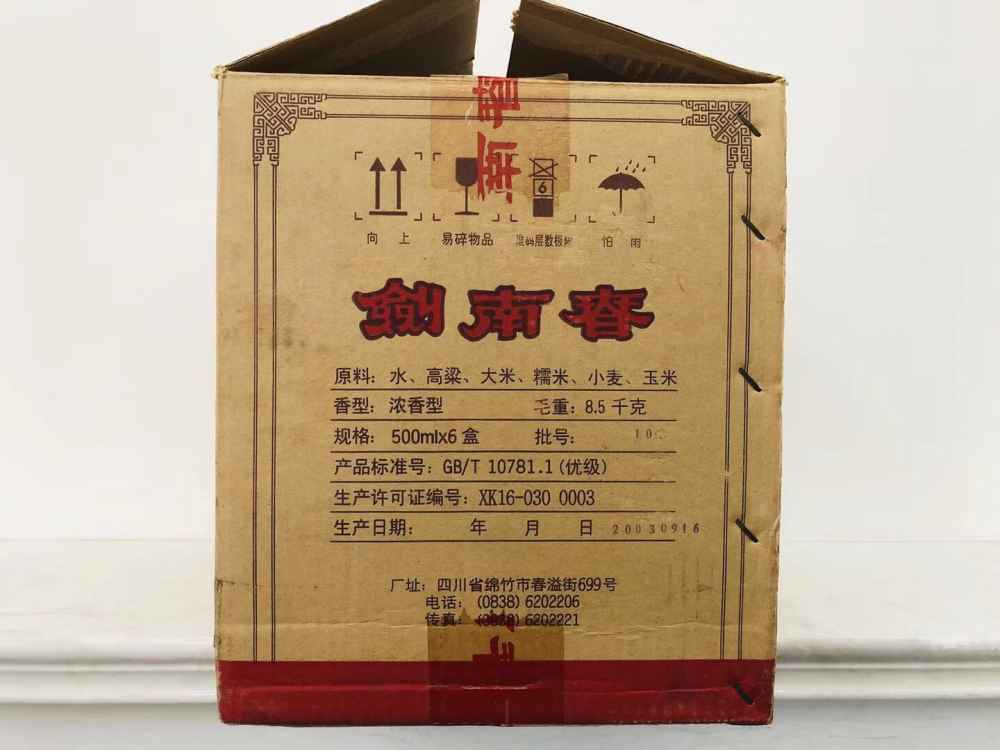 6
向上 易碎物品 堆码层数极限 怕雨
劍南春
原料：水、高粱、大米、糯米、小麦、玉米
香型：浓香型 毛重：8.5 千克
规格：500mlx6 盒 批号：10
产品标准号：GB/T 10781.1 (优级)
生产许可证编号：XK16-030 0003
生产日期： 年 月 日 20030916
厂址：四川省绵竹市春溢街699号
电话：(0838) 6202206
传真：(0838) 6202221